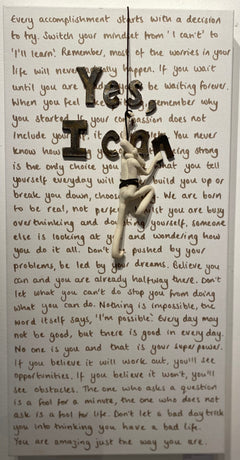 Every accomplishment starts with a decision
to try. Switch your mindset from 'I can't' to
'I'll learn'. Remember, most of the worries in your
life will never happen. If you wait
until you are you be waiting forever.
When you feel remember why
you started. Your compassion does not
include your it You never
know how being strong
is the only choice you What you tell
yourself everyday will build you up or
break you down, choose We are born
to be real, not perfect. Whilst you are busy
overthinking and yourself, someone
else is looking at you and wondering how
you do it all. Don't be pushed by your
problems, be led by your dreams. Believe you
can and you are already halfway there. Don't
let what you can't do stop you from doing
what you can do. Nothing is impossible, the
word itself says, 'I'm possible'. Every day may
not be good, but there is good in every day.
No one is you and that is your superpower.
If you believe it will work out, you'll see
opportunities. If you believe it won't, you'll
see obstacles. The one who asks a question
is a fool for a minute, the one who does not
ask is a fool for life. Don't let a bad day trick
you into thinking you have a bad life.
You are amazing just the way you are.
Yes,
I can